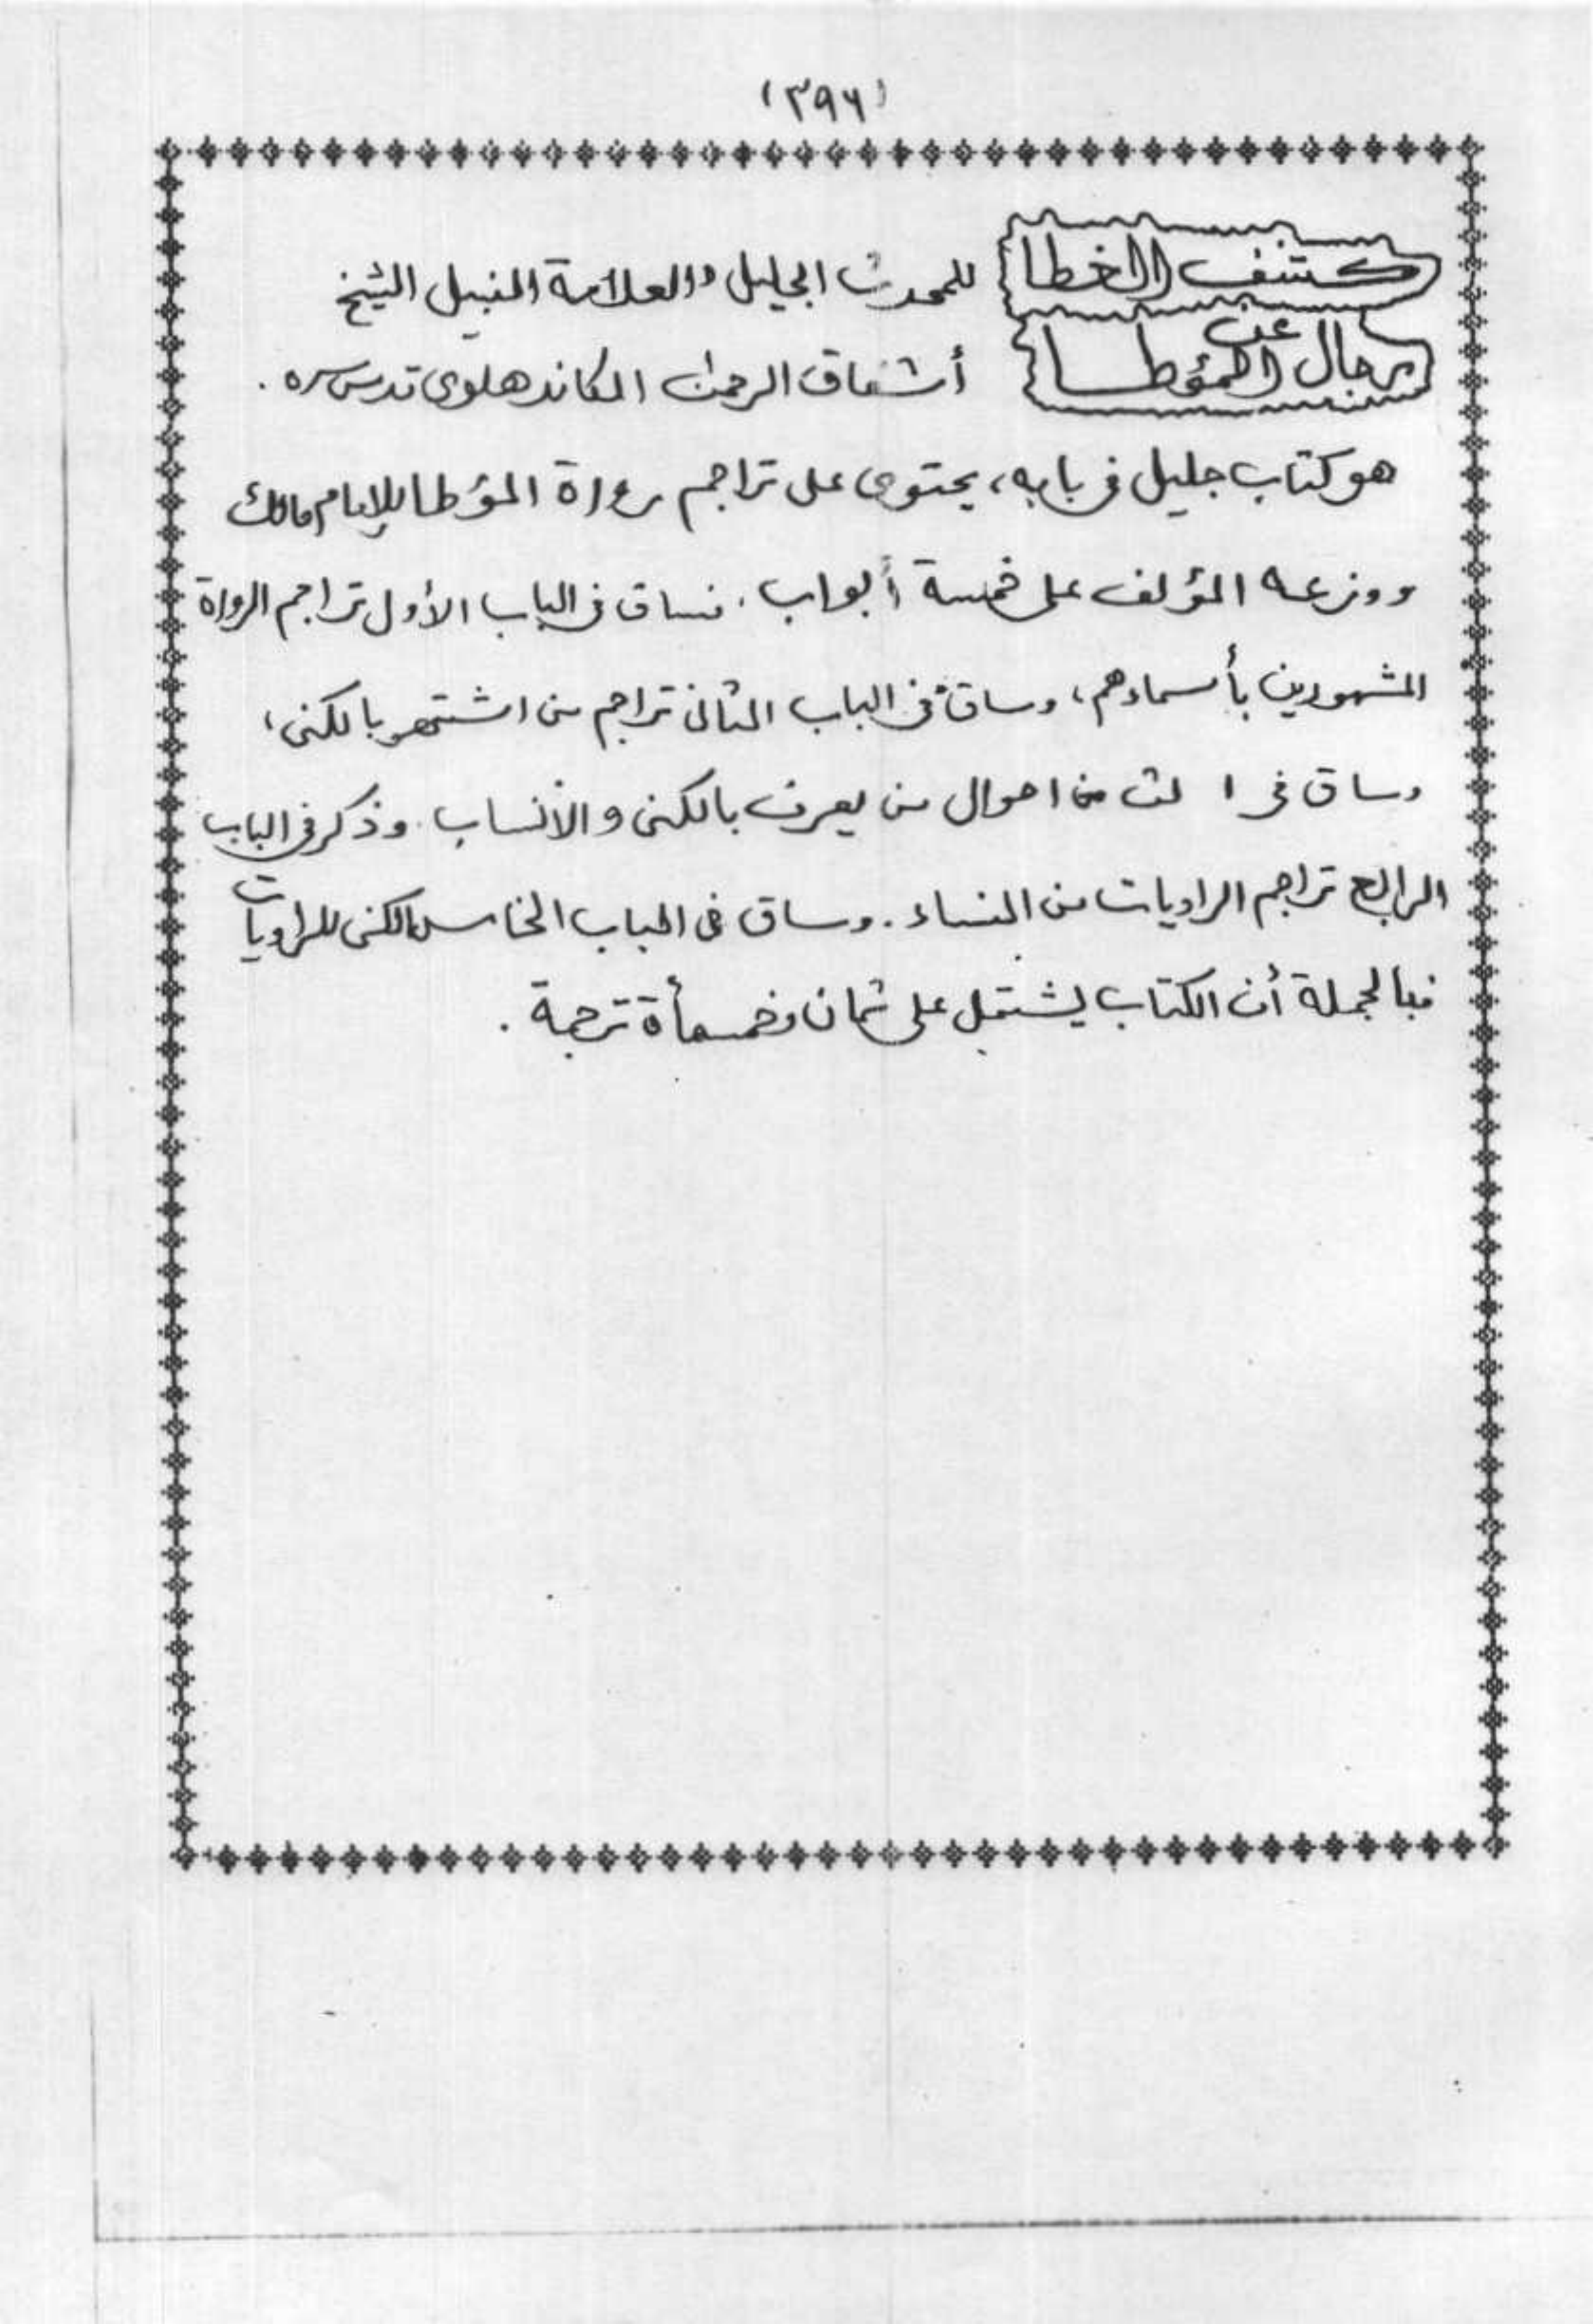 (٣٩٦)
كشف الخطا للمحدث الجليل والعلامة النبيل الشيخ
عن رجال المؤطا أشفاق الرحمن الكاندهلوى قدس سره .
هو كتاب جليل فى بابه، يحتوى على تراجم رواة المؤطا للإمام مالك
ووزعه المؤلف على خمسة أبواب . فساق فى الباب الأول تراجم الرواة
المشهورين بأسماءهم، وساق فى الباب الثانى تراجم من اشتهر بالكنى،
وساق فى ا لث من احوال من يعرف بالكنى والأنساب . وذكر فى الباب
الرابع تراجم الراويات من النساء . وساق فى الباب الخامس الكنى للراويات
فبالجملة أن الكتاب يشتمل على ثمان وخمسمأة ترجمة .